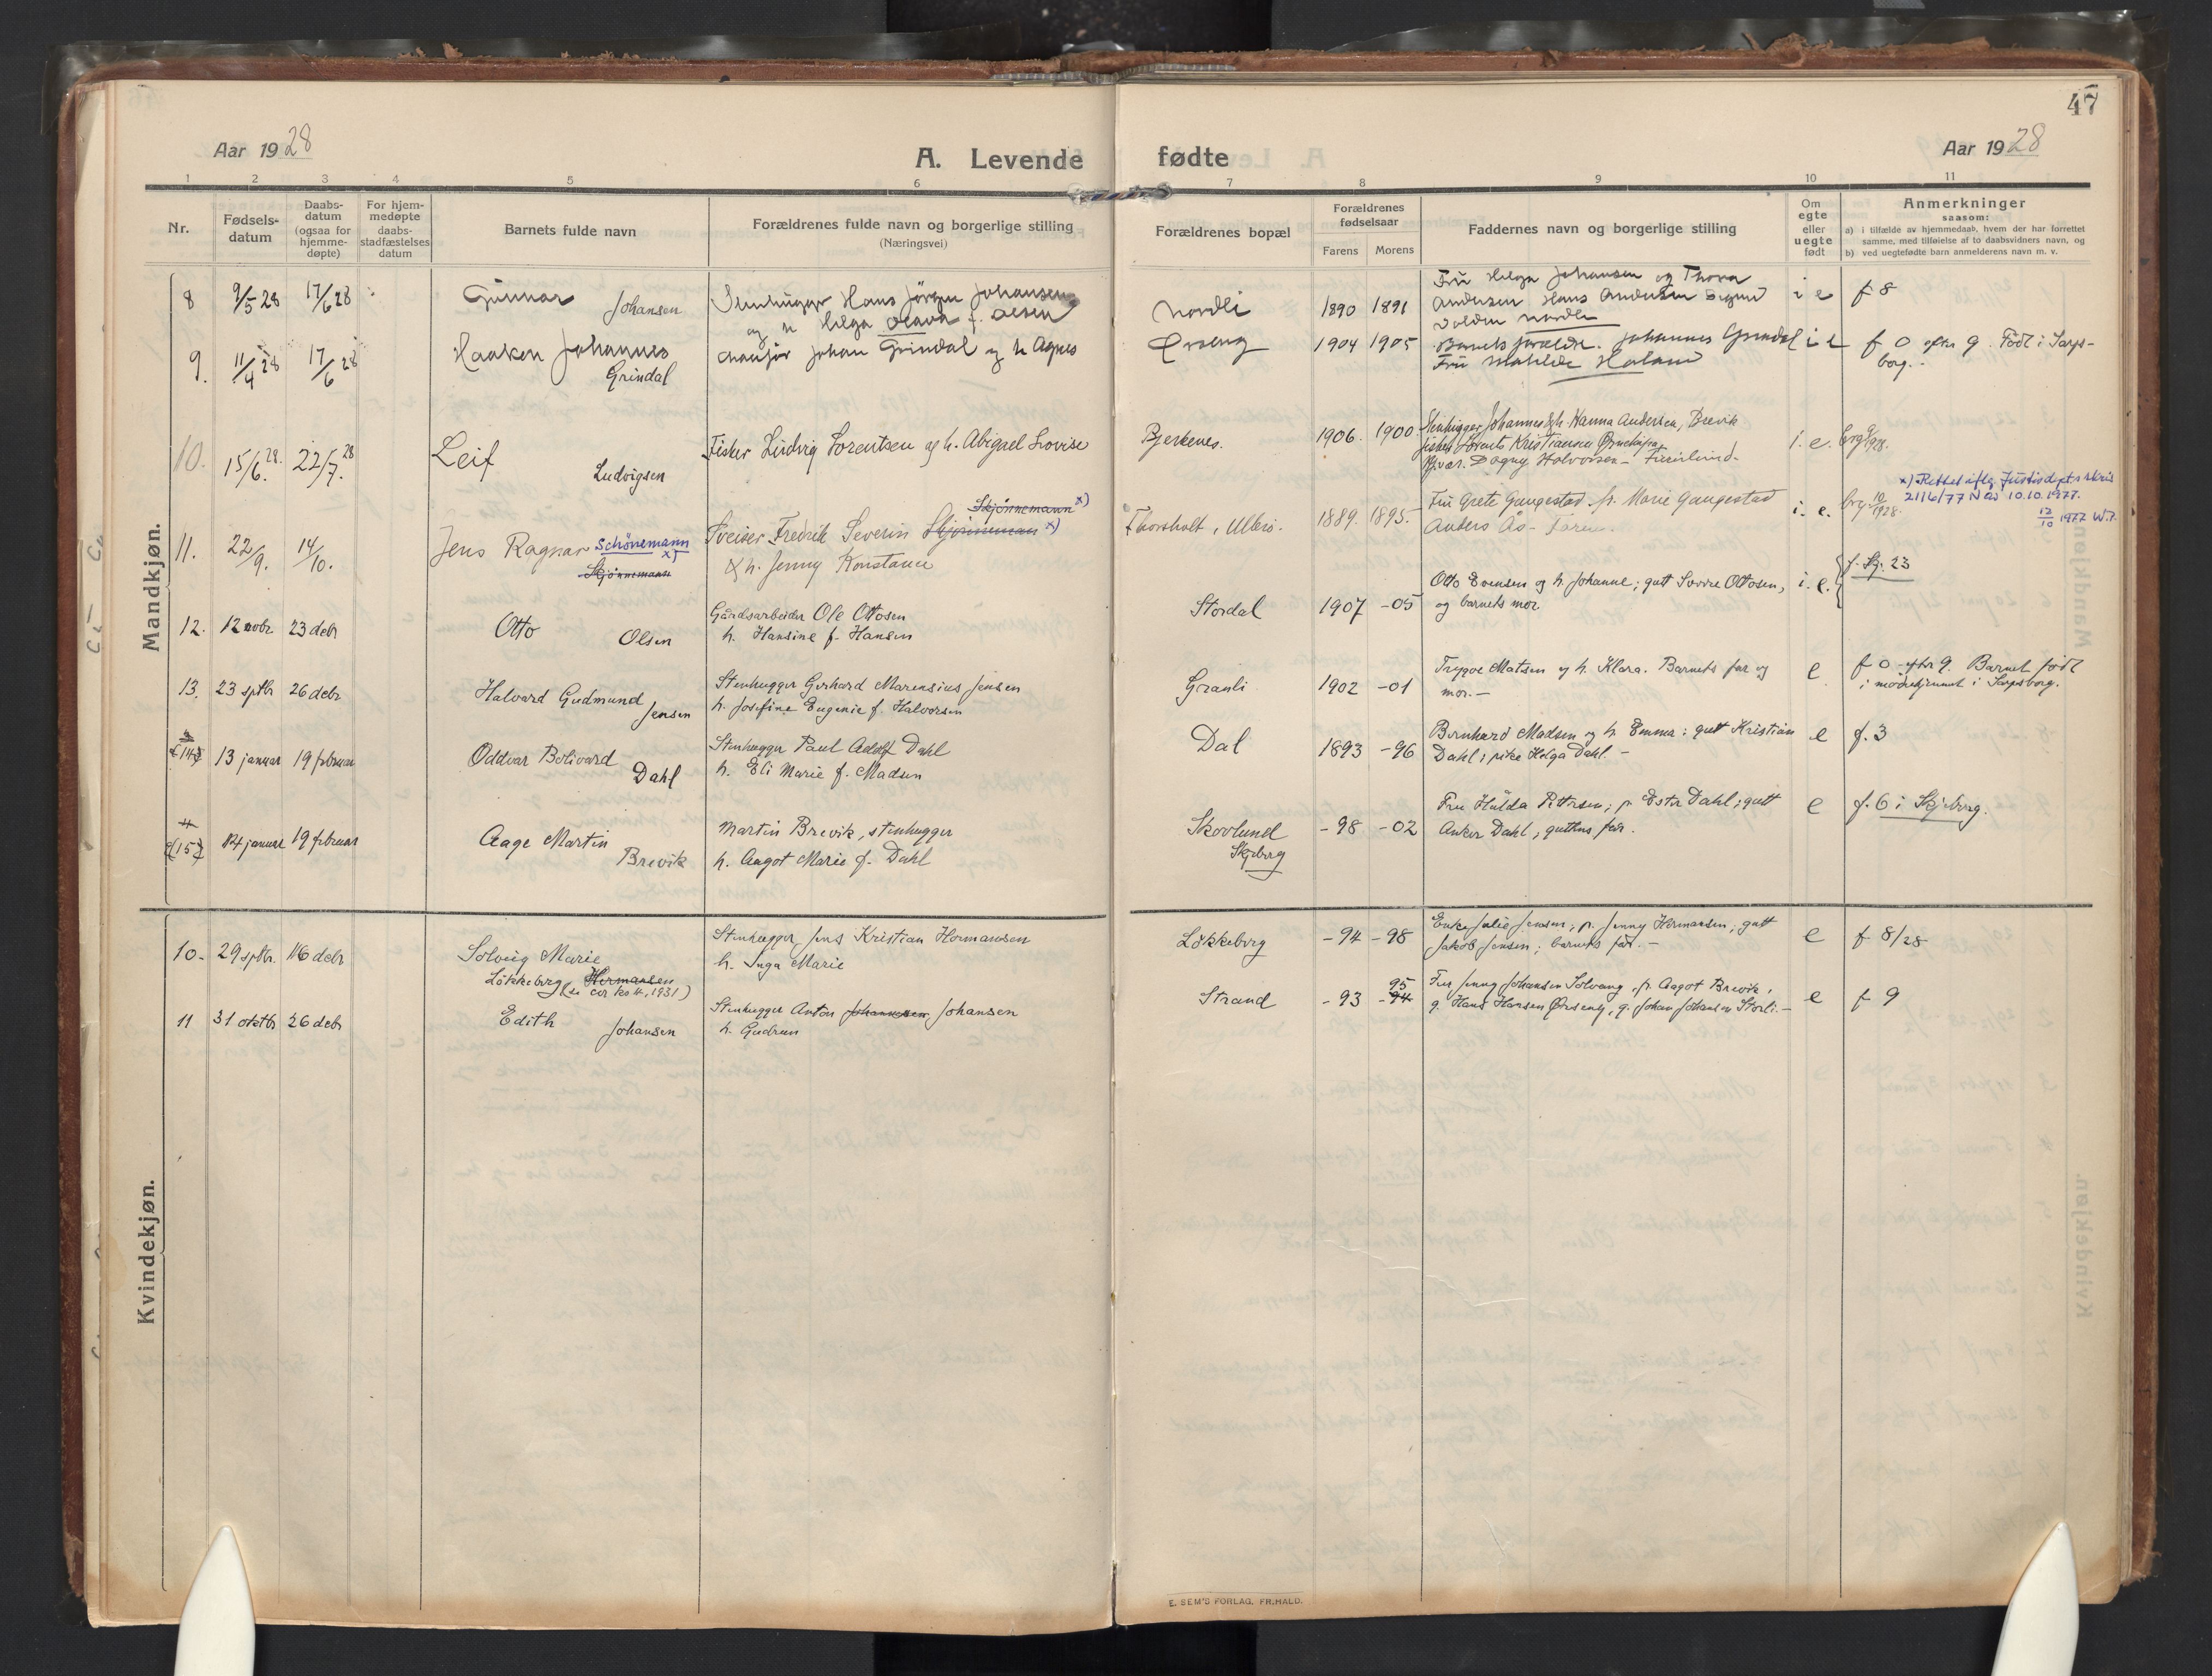 47
Aar 1928
A. Levende
fødte
Aar 1928
1 2 3 4 5 6 7 8 9 10 11
Nr.
Fødsels-
datum
Daabs-
datum
(ogsaa for
hjemme-
døpte)
For hjem-
medøpte
daabs-
stadfæstelses
datum
Barnets fulde navn
Forældrenes fulde navn og borgerlige stilling
(Næringsvei)
Forældrenes bopæl
Forældrenes
fødselsaar
Farens Morens
Faddernes navn og borgerlige stilling
Om
egte
eller
uegte
født
Anmerkninger
saasom:
a) i tilfælde av hjemmedaab, hvem der har forrettet
samme, med tilføielse af to daabsvidners navn, og
b) ved uegtefødte barn anmelderens navn m. v.
Mandkjøn.
8 9/5 28 17/6 28 Gunnar Johansen
Stenhugger Hans Jörgen Johansen
og h Helga Olava f. Olsen
Nordli 1890 1891
Fru Helga Johansen og Thora
Andersen Hans Andersen Sigurd
Nordli
i e f 8
9. 11/4 28 17/6 28 Haakon Johannes
Grindal
chauffør Johan Grindal og h Agnes
1904 1905
Johannes Grindal
Fru Mathilde
i e f 0 efter 9. Födt i Sarps-
borg.
10. 15/6 28. 22/7. 28 Leif
Ludvigsen
Fisker Ludvig Lorentsen og h. Abigael Lovise
Bjerkenes. 1906. 1900.
Stenhugger Johannes og h. Hanna Andersen, Brevik
fisker Lorents Kristiansen
Dagny Halvorsen - Furulund.
i. e.
11. 22/9. 14/10. Jens Ragnar Schönemann x)
Skjönnemann
Skjønnemann x)
Sveiser Fredrik Severin Skjönneman x)
& h. Jenny Konstance
Thorsholt, Ullerö. 1889. 1895.
Fru Grete Gangestad. fr. Marie Gangestad
Anders Ås -
i. e.
x) Rettet iflg. Justisdpt.s skriv
2116/77 N ås 10.10.1977.
12/10 1977 W.T.
12. 12 novbr 23 debr Otto Olsen
Gaardsarbeider Ole Ottosen
h. Hansine f. Hansen
Stordal 1907 -05
Otto Evensen og h. Johanne; gutt Sverre Ottosen,
og barnets mor.
i. e. f. Skj. 23
13. 23 septbr 26 debr Halvard Gudmund
Jensen
Stenhugger Gerhard Marensius Jensen
h. Josefine Eugenie f. Halvorsen
Granli 1902 -01
Trygve Matsen og h. Klara. Barnets far og
mor. -
e f 0 efter 9. Barnet født
i mødrehjemmet i Sarpsborg.
3
(14) 13 januar 19 februar Oddvar Bolivard
Dahl
Stenhugger Paul Adolf Dahl
h. Eli Marie f. Madsen
Dal 1893 -96
Bernhard Madsen og h. Emma; gutt Kristian
Dahl; pike Helga Dahl. -
e f. 3
4
(15) 14 januar 19 februar Aage Martin
Brevik
Martin Brevik, stenhugger
h. Aagot Marie f. Dahl
Skovlund
Skjeberg
-98 -02
Fru Hulda Pettersen; p. Ester Dahl; gutt
Anker Dahl, guttens far.
e f. 6 i Skjeberg.
Kvindekjøn.
10. 29 septbr. 16 debr Solveig Marie
Løkkeberg Hermansen
(se cir ks 4, 1931)
Stenhugger Jens Kristian Hermansen
h. Inga Marie
Løkkeberg -94 -98
Enke Julie Jensen; p. Jenny Hermansen; gutt
Jakob Jensen; barnets far. -
e f 8/28
11 31 oktbr 26 debr Edith Johansen
Stenhugger Anton Johannesen Johansen
h. Gudrun
Strand -93 -94 95
Fru Jenny Johansen Solvang, p. Aagot Brevik,
g. Hans Hansen Ørseng, g. Johan Johansen Storli. -
e f 9
E. SEM'S FORLAG, FR.HALD.